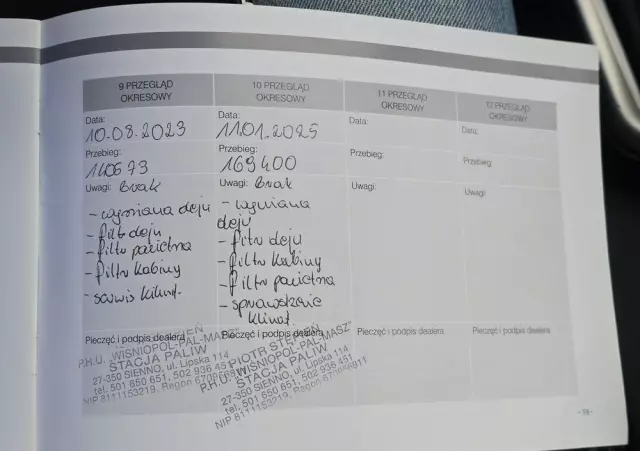 9 PRZEGLĄD
OKRESOWY
Data:
10.08.2023
Przebieg:
140673
Uwagi: Brak
- wymiana oleju
- filtr oleju
- filtr powietrza
- filtr kabiny
- serwis klimat.
Pieczęć i podpis dealera
P.H.U. „WIŚNIOPOL-PAL-MASZ”
STACJA PALIW
27-350 SIENNO, ul. Lipska 114
tel. 501 650 651, 502 936 451
NIP 8111153219, Regon
10 PRZEGLĄD
OKRESOWY
Data:
11.01.2025
Przebieg:
169400
Uwagi: Brak
- wymiana
oleju
- filtr oleju
- filtr kabiny
- filtr powietrza
- sprawdzenie
klimat.
Pieczęć i podpis dealera
PIOTR STĘPIEŃ
P.H.U. „WIŚNIOPOL-PAL-MASZ”
STACJA PALIW
27-350 SIENNO, ul. Lipska 114
tel. 501 650 651, 502 936 451
NIP 8111153219, Regon
11 PRZEGLĄD
OKRESOWY
Data:
Przebieg:
Uwagi:
Pieczęć i podpis dealera
12 PRZEGLĄD
OKRESOWY
Data:
Przebieg:
Uwagi:
Pieczęć i podpis dealera